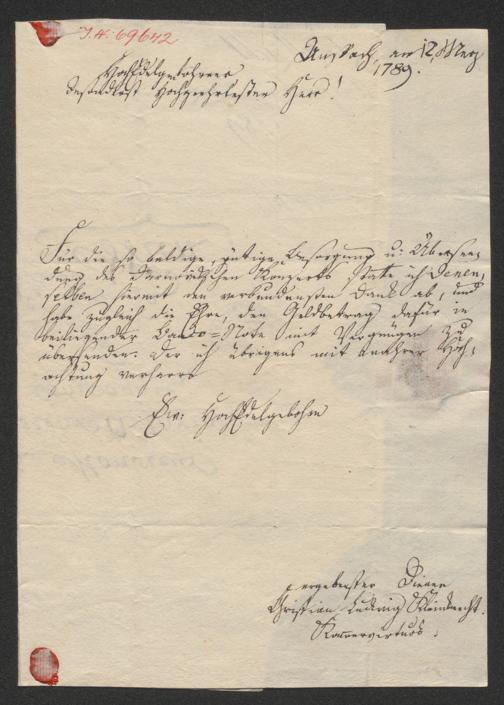 I.N. 69642
Anspach, am 12. Merz
1789.
HochEdelgebohrner
Besonders Hochzuehrlester Herr!
Für die so baldige, gütige Besorgung u: Übersen,
dung des Concerts statte ich Denen,
selben hiermit den verbundensten Dank ab, und
habe zugleich die Ehre, den Geldbetrag dafür in
beiliegender Note mit Vergnügen zu
übersenden. Der ich übrigens mit wahrer Hoch,
achtung verharre
Ew: HochEdelgebohrn
ergebenster Diener
Christian Ludwig Kleinknecht.